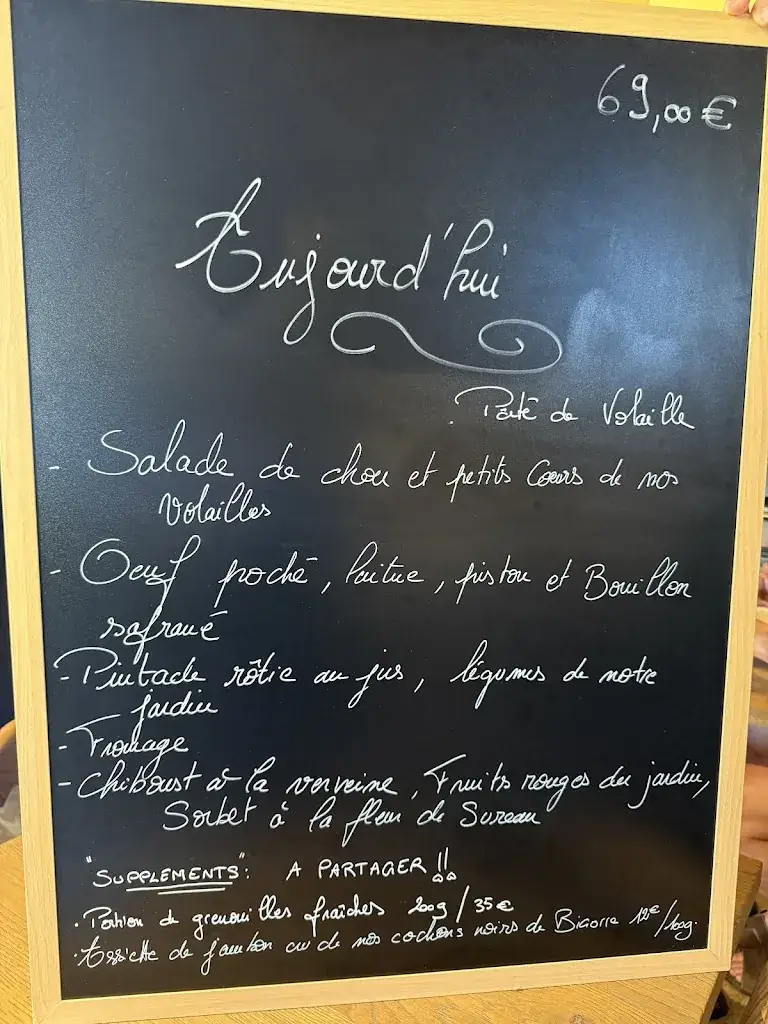 69,00€
Aujourd'hui
Pâté de Volaille
- Salade de chou et petits Coeurs de nos
Volailles
- Oeuf poché, laitue, pistou et Bouillon
safrané
- Pintade rôtie au jus, légumes de notre
jardin
- Fromage
- Chiboust à la verveine, Fruits rouges du jardin,
Sorbet à la fleur de Sureau
"SUPPLÉMENTS": A PARTAGER!!
· Portion de grenouilles fraîches 200g / 35€
· Assiette de jambon cru de nos cochons noirs de Bigorre 12€/100g.